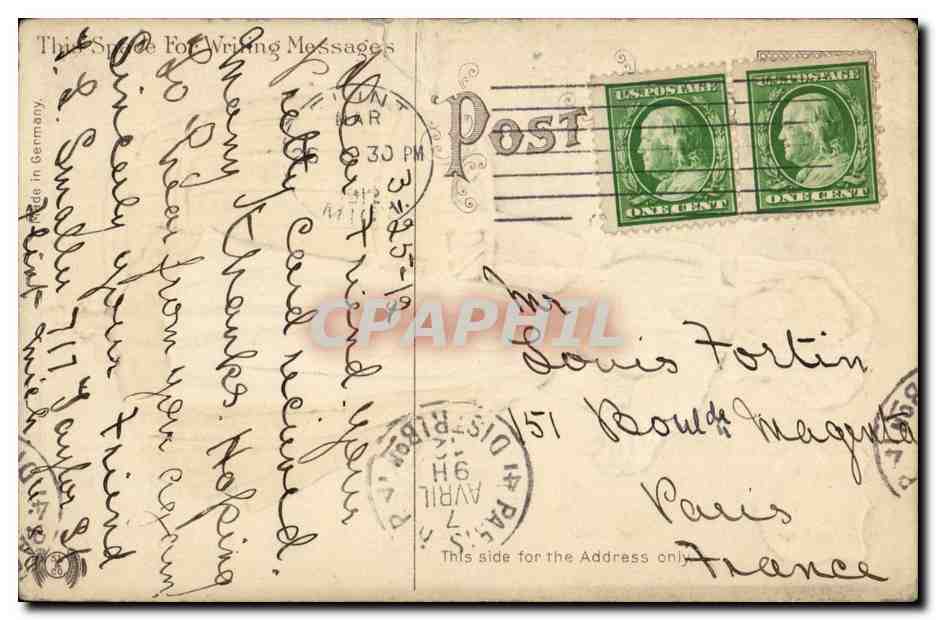 This Space For Writing Messages
Made in Germany.
3-25-12
Dear Friend your
Pretty Card recieved.
Many Thanks. Hoping
to hear from you again
Sincerely your Friend
Smalley 717 Taylor St
Flint Mich
FLINT
MAR
30 PM
MICH
POST
U.S. POSTAGE
ONE CENT
U.S. POSTAGE
ONE CENT
Mr
Louis Fortin
151 Bould de Magenta
Paris
France
PARIS
DISTRIBON
9H
7
AVRIL
This side for the Address only.
CPAPHIL